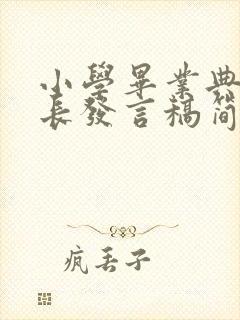 小學畢業典
長發言稿简
疯丢子